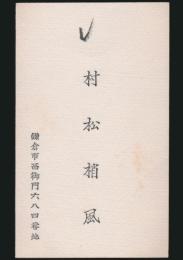 村松梢風
鎌倉市西御門六八四番地